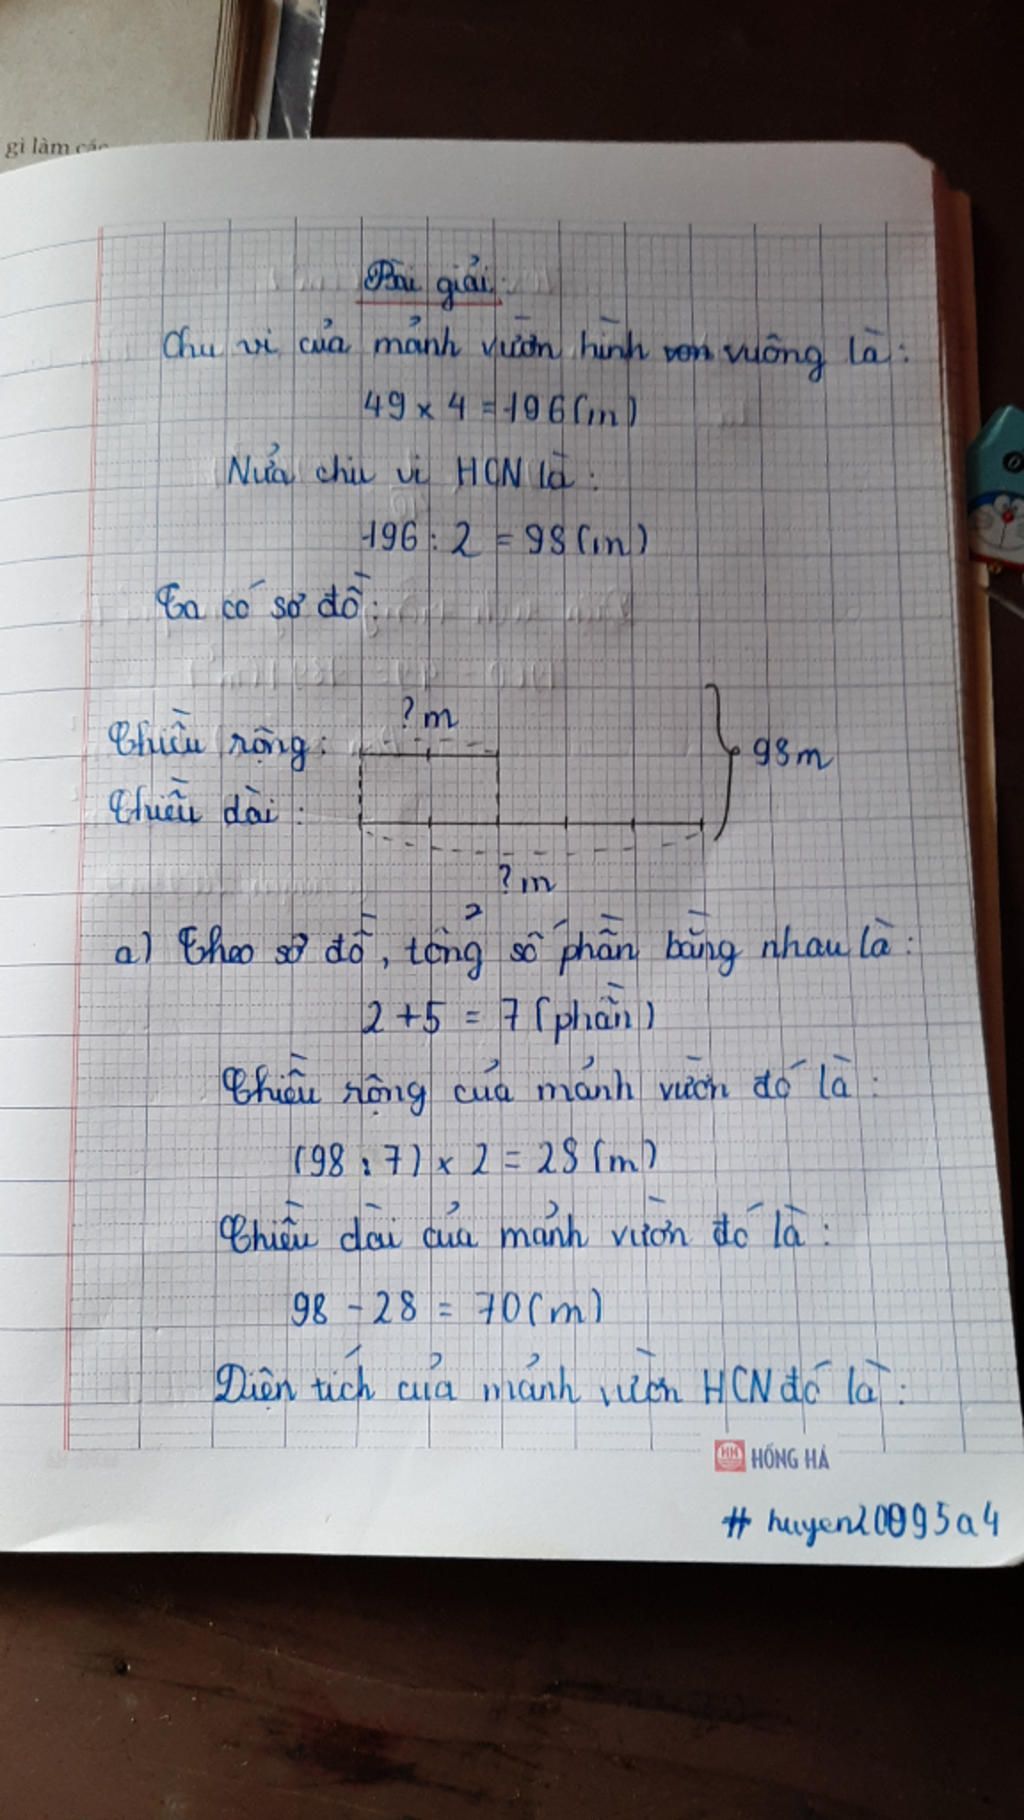 gì làm các
Bài giải:
Chu vi của mảnh vườn hình vuông là:
49 x 4 = 196 (m)
Nửa chu vi HCN là:
196 : 2 = 98 (m)
Ta có sơ đồ:
?m
Chiều rộng:
98m
Chiều dài:
?m
a) Theo sơ đồ, tổng số phần bằng nhau là:
2 + 5 = 7 (phần)
Chiều rộng của mảnh vườn đó là:
(98 : 7) x 2 = 28 (m)
Chiều dài của mảnh vườn đó là:
98 - 28 = 70 (m)
Diện tích của mảnh vườn HCN đó là:
HH HỒNG HÀ